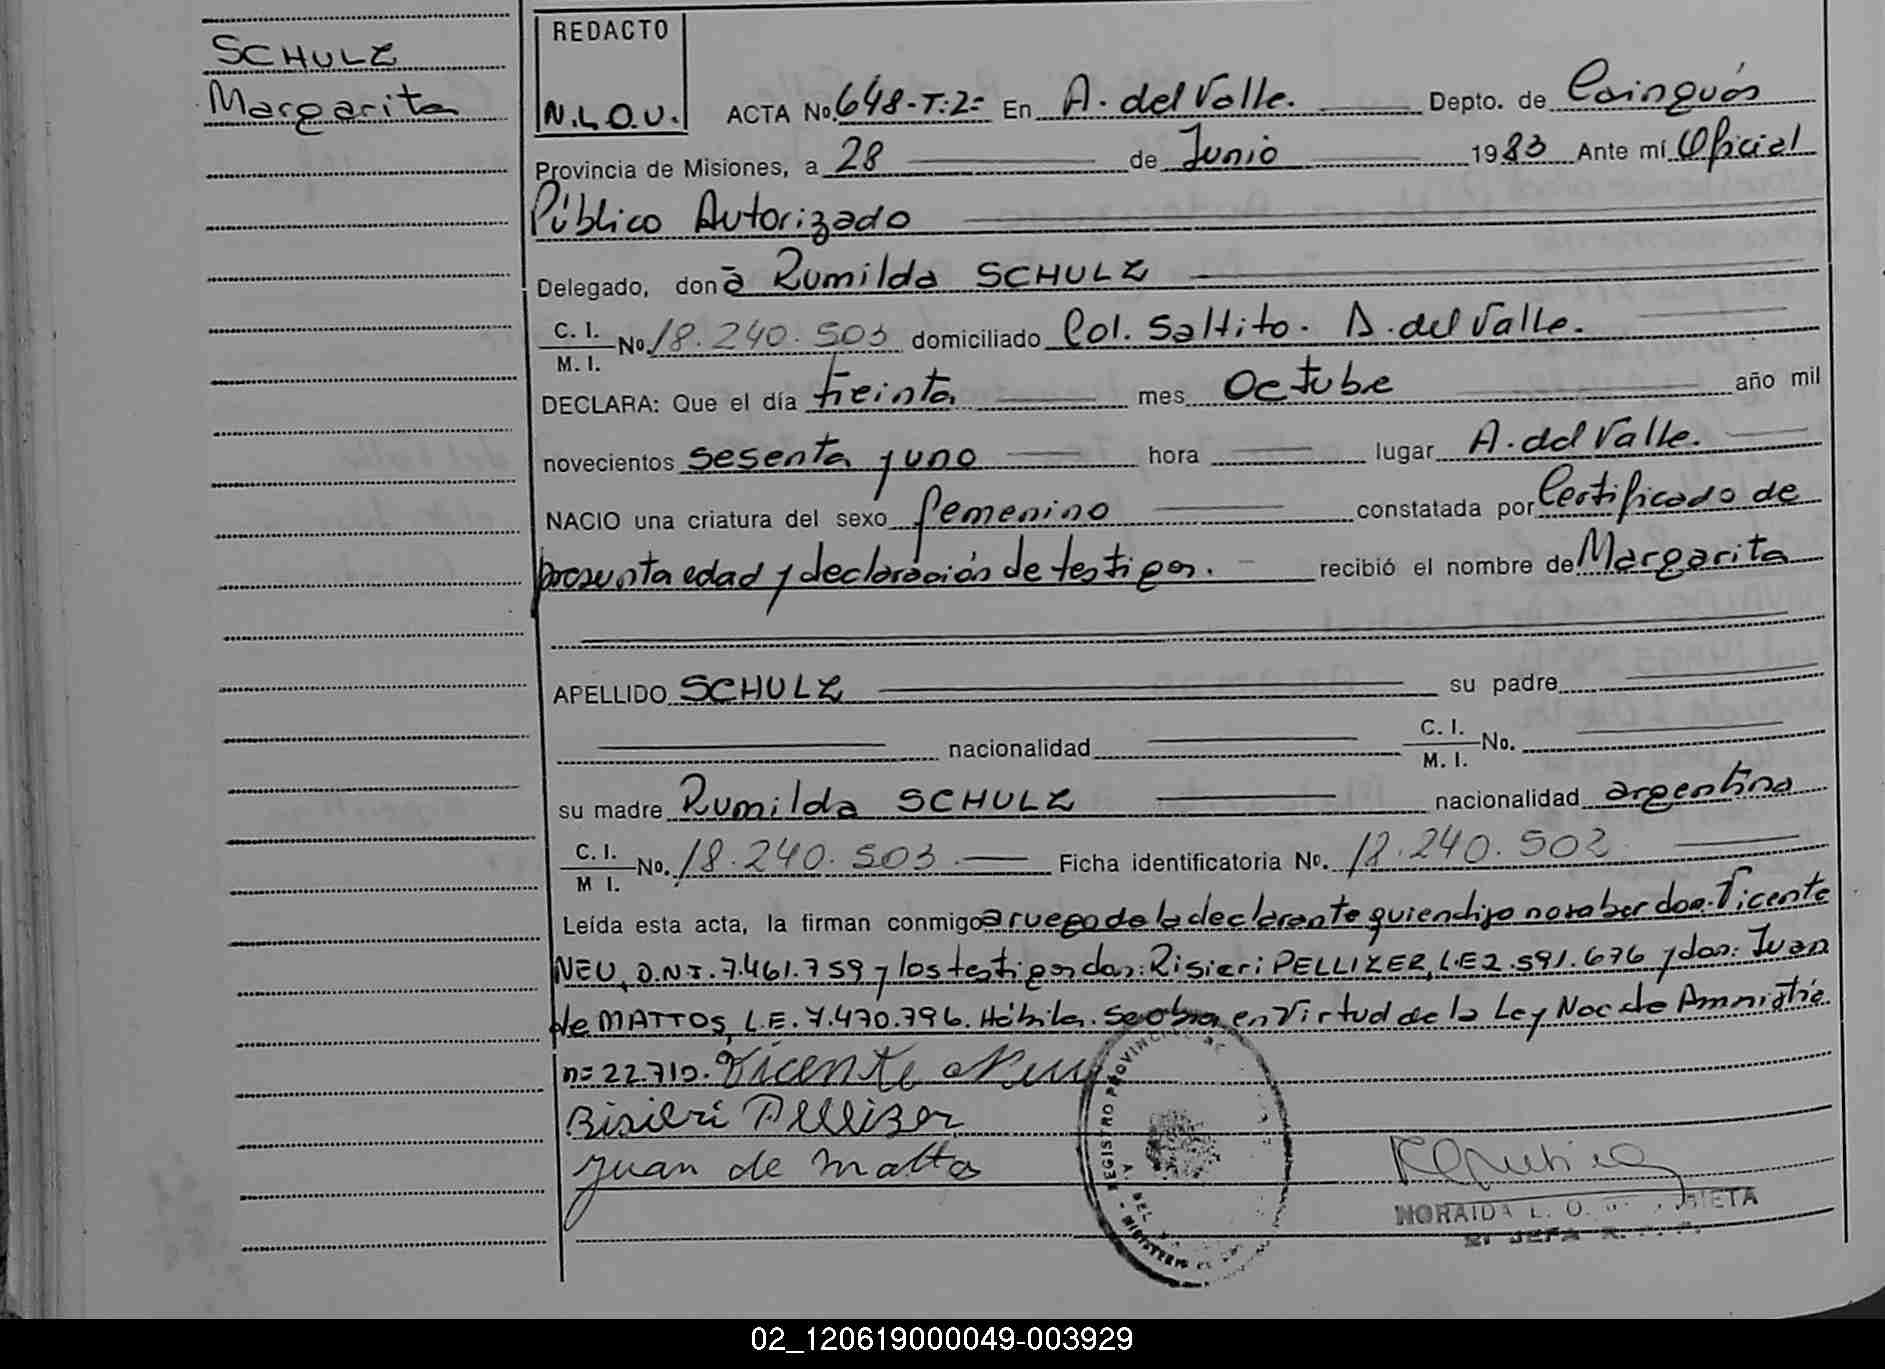 SCHULZ
Margarita
REDACTO
N.L.O.U.
ACTA No. 648-T:2= En A. del Valle. Depto. de Cainguás
Provincia de Misiones, a 28 de Junio 1983 Ante mí Oficial
Público Autorizado
Delegado, donā Rumilda SCHULZ
C. I.
M. I.
No. 18.240.503 domiciliado Col. Saltito. A. del Valle.
DECLARA: Que el día treinta mes Octubre año mil
novecientos sesenta y uno hora lugar A. del Valle.
NACIO una criatura del sexo femenino constatada por Certificado de
presunta edad y declaración de testigos. recibió el nombre de Margarita
APELLIDO SCHULZ su padre
nacionalidad C. I.
M. I. No.
su madre Rumilda SCHULZ nacionalidad argentina
C. I.
M I. No. 18.240.503 Ficha identificatoria No. 18.240.502
Leída esta acta, la firman conmigo a ruego de la declarante quien dijo no saber don. Vicente
NEU, D.N.I. 7.461.759 y los testigos don: Risieri PELLIZER, L.E 2.591.676 y don: Juan
de MATTOS, L.E. 7.470.796. Hábiles. Se obra en Virtud de la Ley Nac de Amnistía
n= 22.710. Vicente Neu
Risieri Pellizer
Juan de Matto
REGISTRO PROVINCIAL DE
NORAIDA L. O.
JEFA
02_120619000049-003929